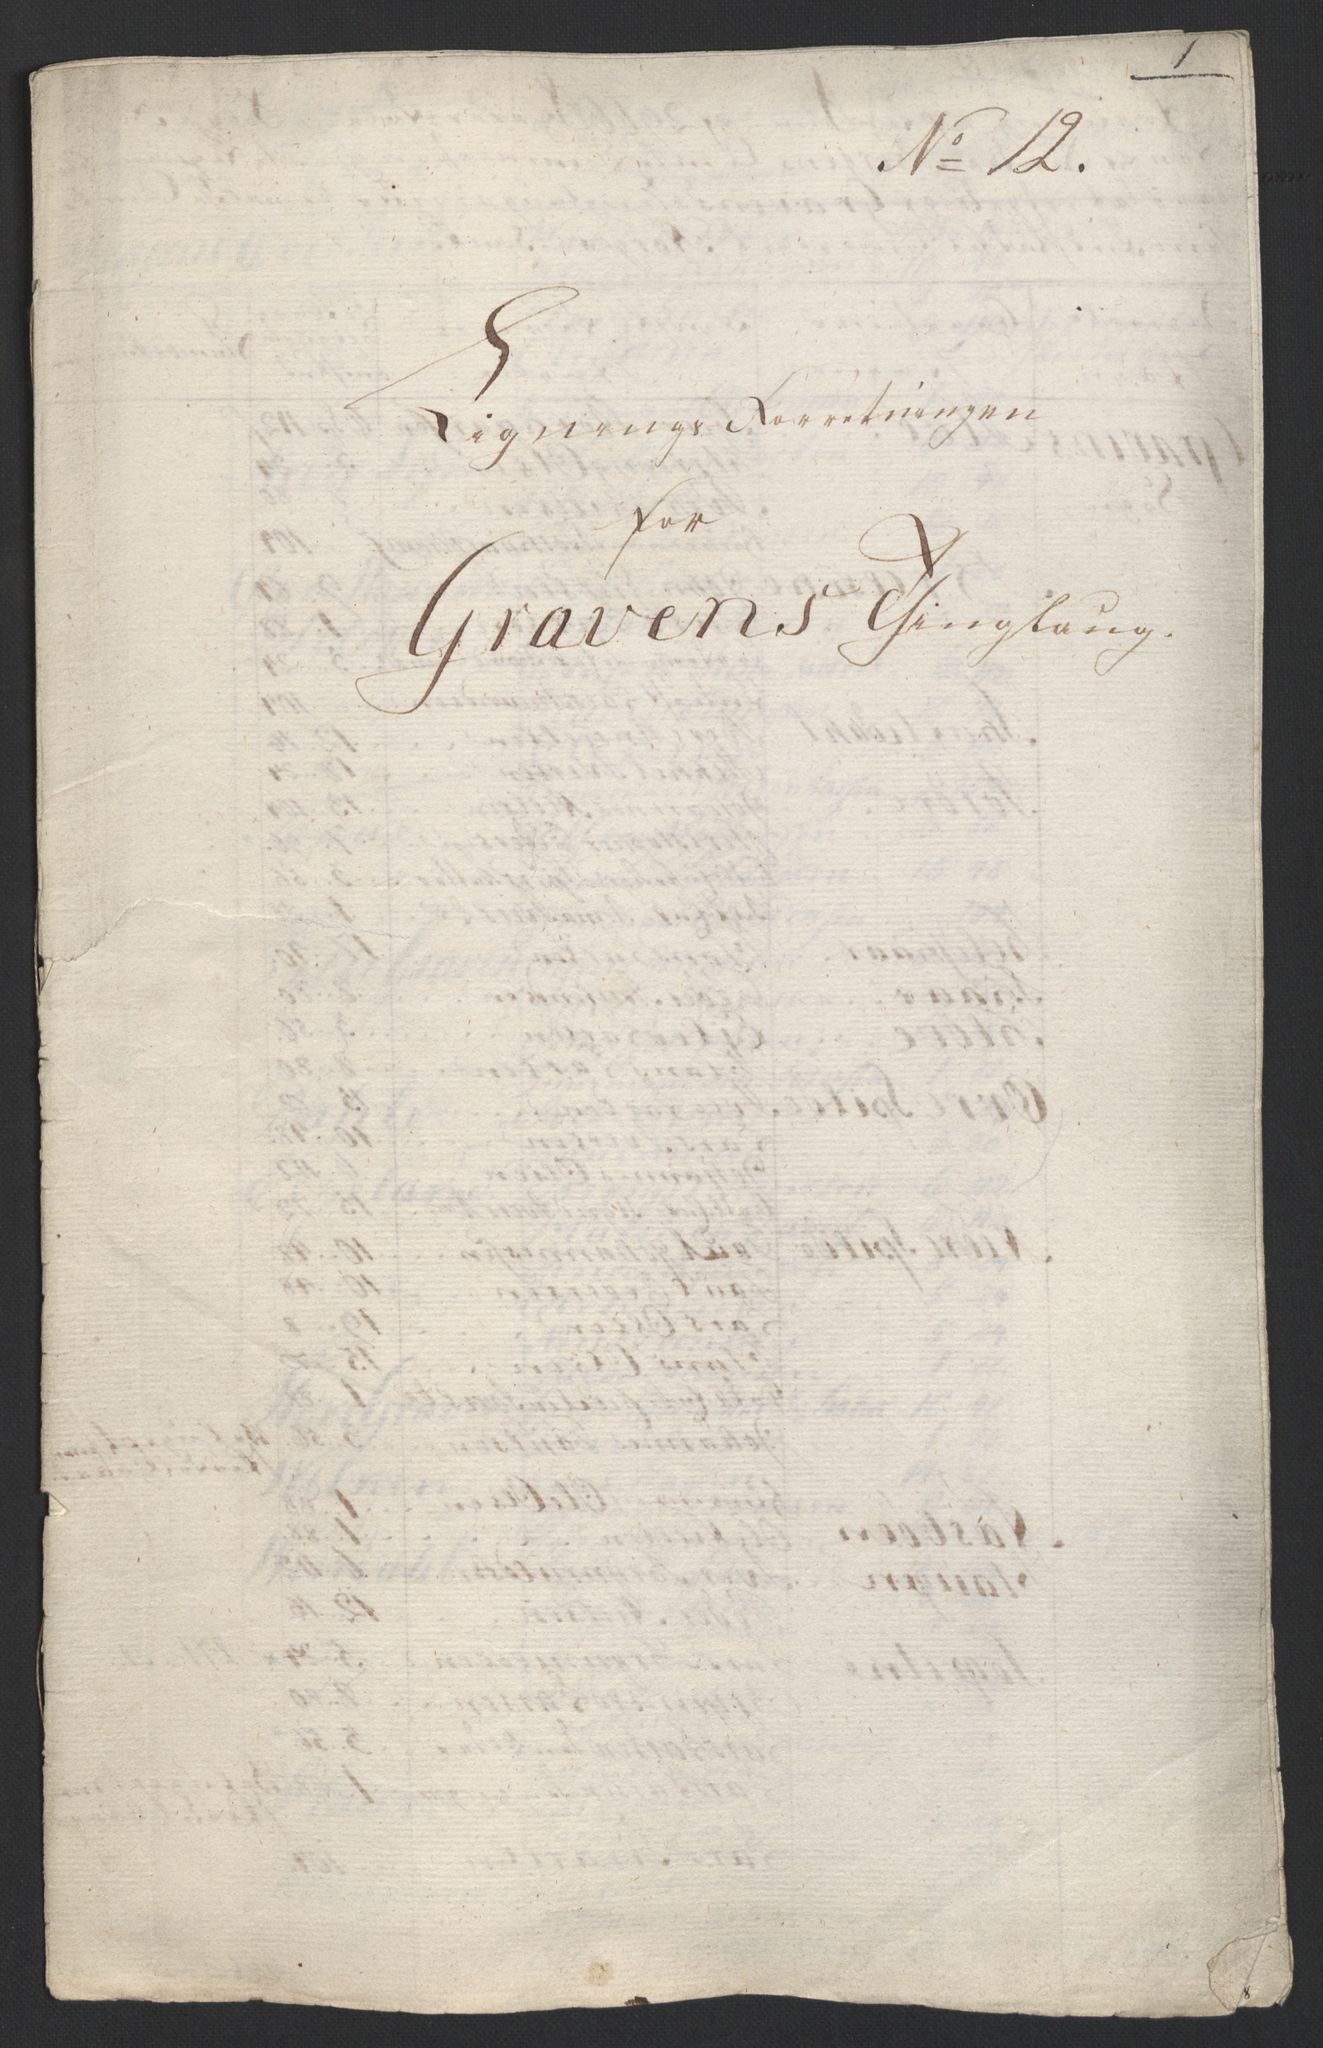 1
No 12.
Lignings Forretningen
for
Gravens Thinglaug.